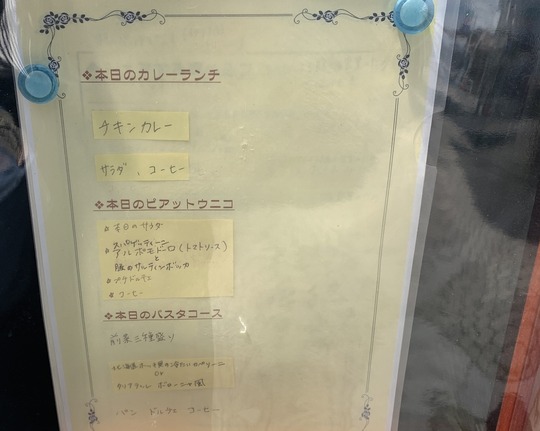 ❖本日のカレーランチ
チキンカレー
サラダ、コーヒー
❖本日のピアットウニコ
本日のサラダ
スパゲッティーニ
アルポモドーロ(トマトソース)
と
豚のサルティンボッカ
プチドルチェ
コーヒー
❖本日のパスタコース
前菜三種盛り
or
タリアテッレ ボローニャ風
パン ドルチェ コーヒー